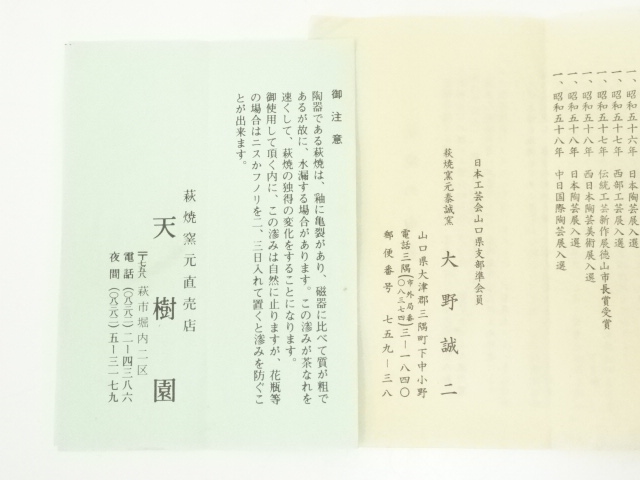 御注意
陶器である萩焼は、釉に亀裂があり、磁器に比べて質が粗で
あるが故に、水漏する場合があります。この滲みが茶なれを
速くして、萩焼の独得の変化をすることになります。
御使用して頂く内に、この滲みは自然に止りますが、花瓶等
の場合はニスかフノリを二、三日入れて置くと滲みを防ぐこ
とが出来ます。
萩焼窯元直売店
天樹園
〒七五八 萩市堀内二区
電話(〇八三八二)二―四三八六
夜間(〇八三八二)五―三一七九
一、昭和五十六年 日本陶芸展入選
一、昭和五十七年 西部工芸展入選
一、昭和五十七年 伝統工芸新作展徳山市長賞受賞
一、昭和五十八年 西日本陶芸美術展入選
一、昭和五十八年 日本陶芸展入選
一、昭和五十八年 中日国際陶芸展入選
日本工芸会山口県支部準会員
萩焼窯元泰誠窯
大野誠二
山口県大津郡三隅町下中小野
電話三隅(市外局番〇八三七四)三―一八四〇
郵便番号 七五九―三八